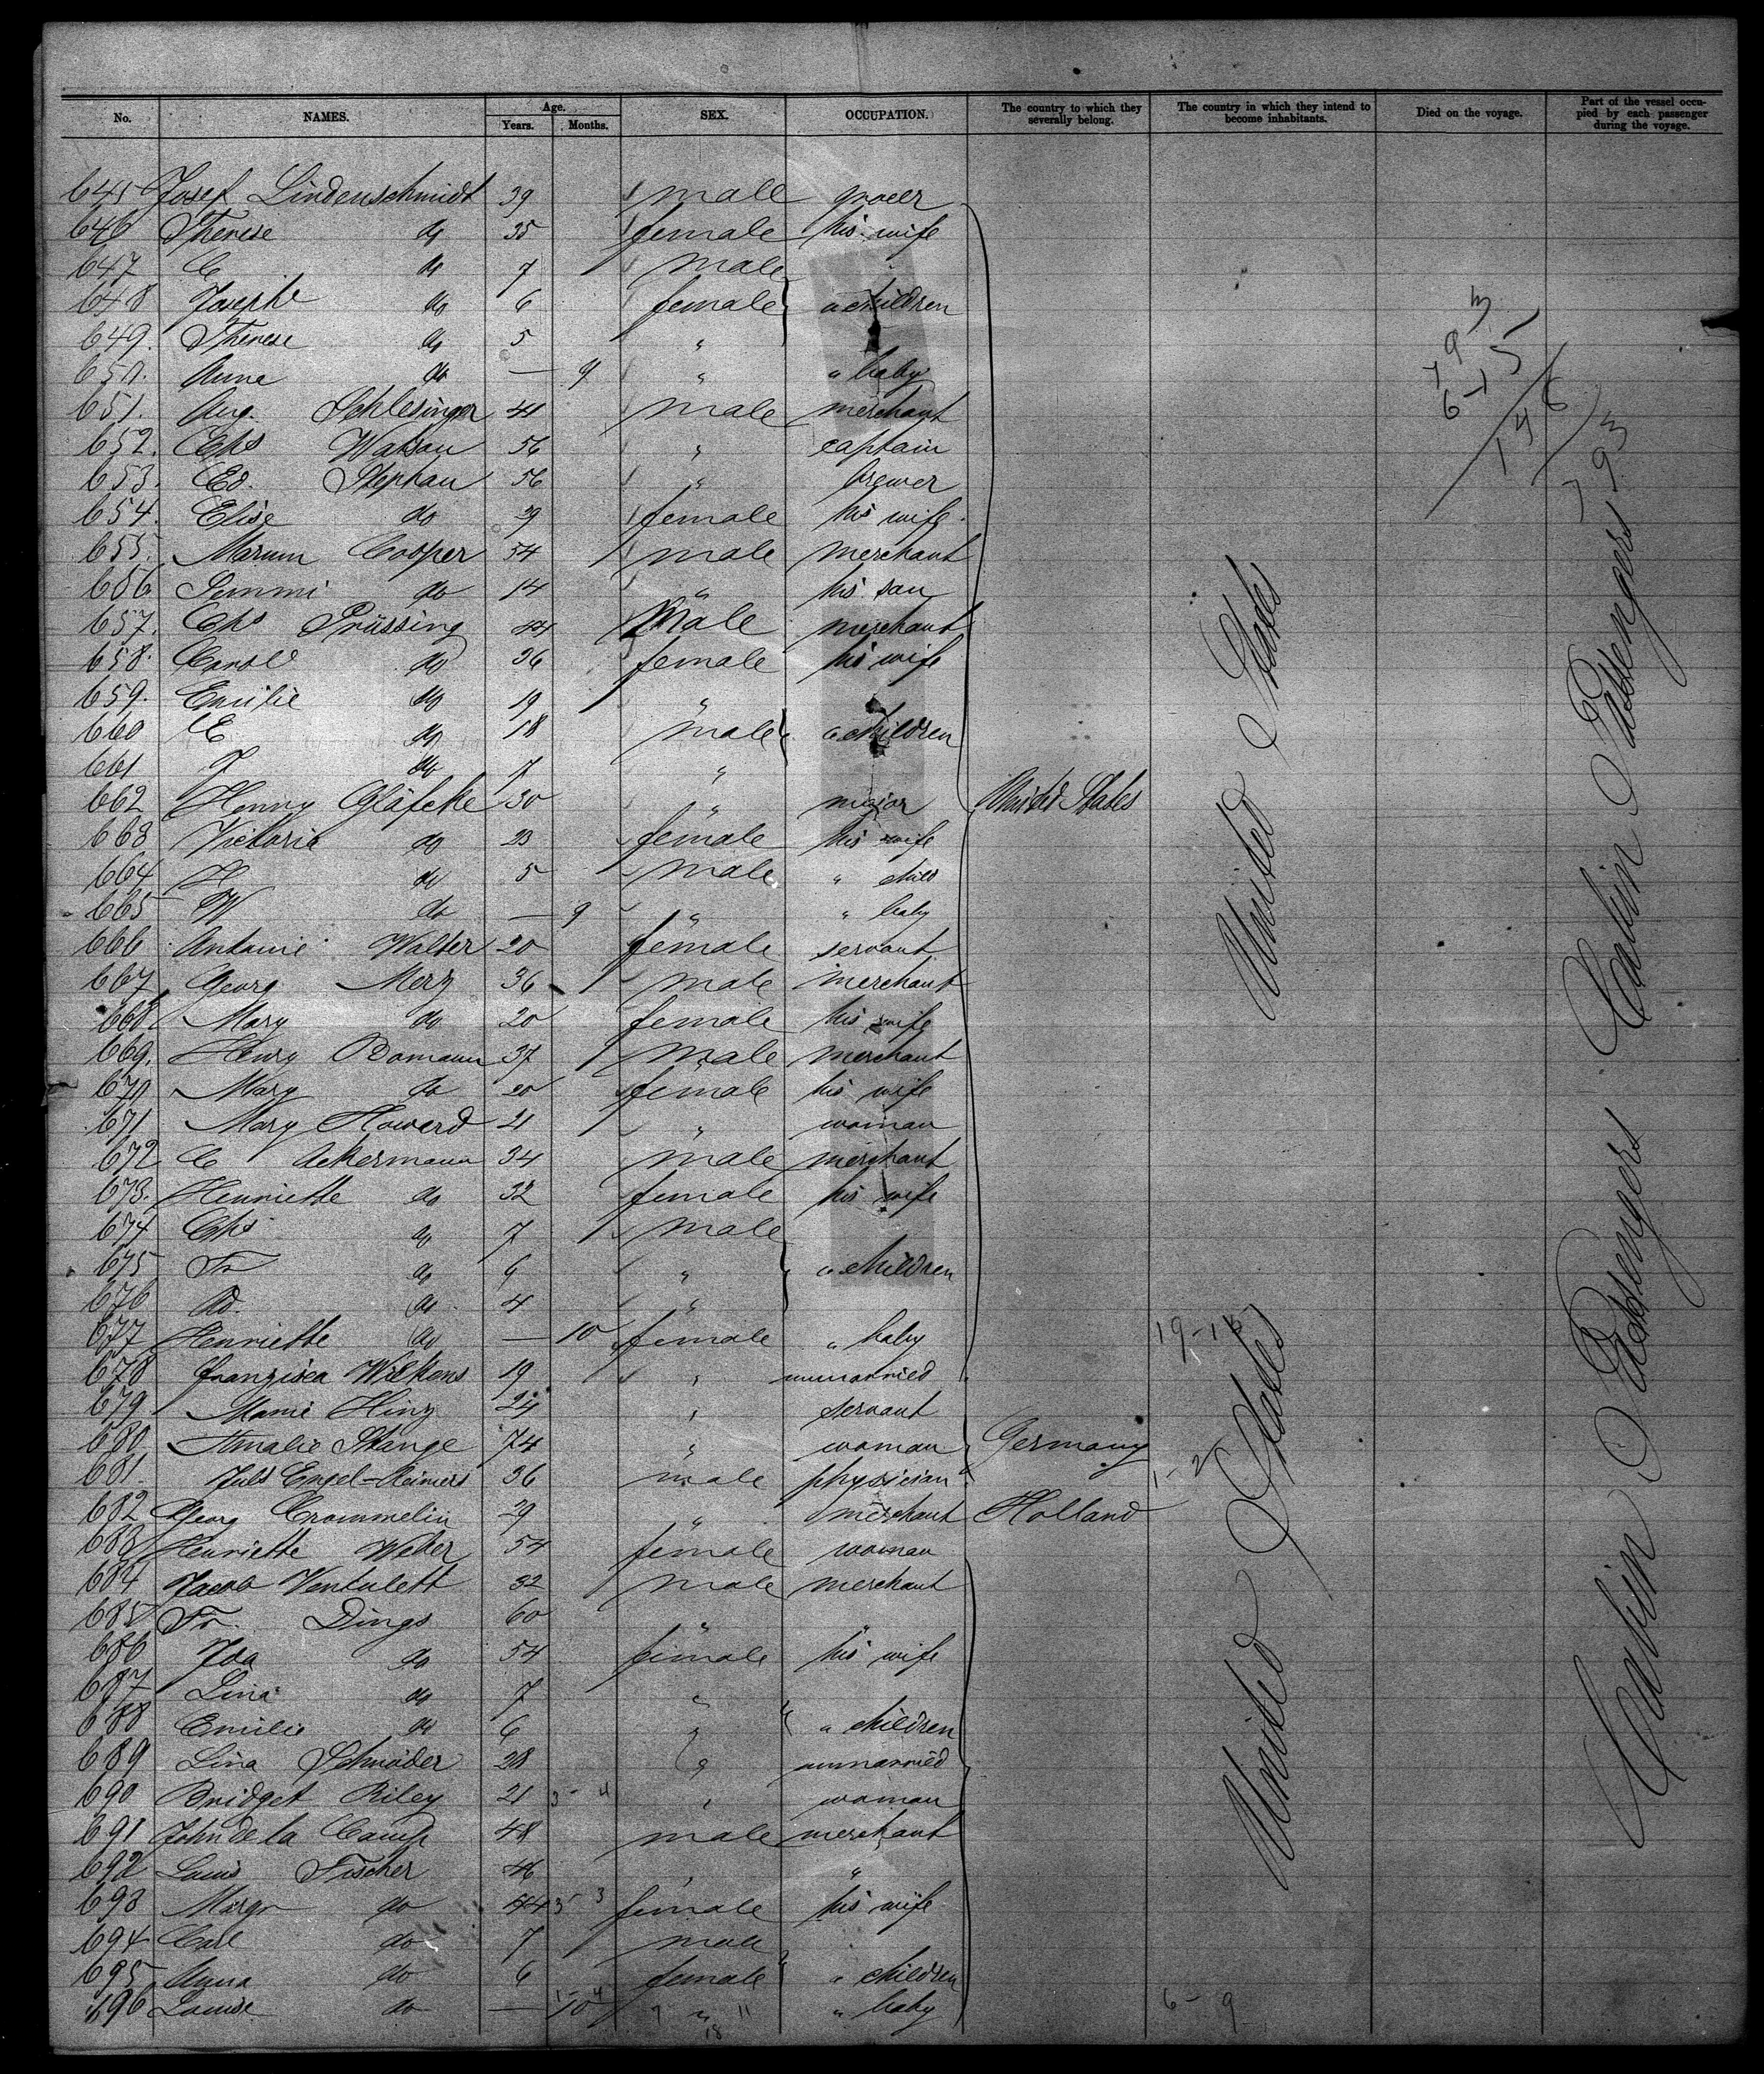 No. NAMES. Age. Years. Months. SEX. OCCUPATION. The country to which they severally belong. The country in which they intend to become inhabitants. Died on the voyage. Part of the vessel occupied by each passenger during the voyage.
645 Josef Lindenschmidt 39 male grocer
646 Therese do 35 female his wife
647 C do 7 male
648 Josephe do 6 female " children
649. Therese do 5 "
650. Anna do — 9 " " baby
651. Aug. Schlesinger 41 male merchant
652. Chs Watson 56 " captain
653. Ed. Stephan 56 " brewer
654. Elise do 39 female his wife
655. Marum Cooper 54 male merchant
656 Semmi do 14 " his son
657. Chs Prüssing 44 Male merchant
658. Carol do 36 female his wife
659. Emilie do 19 "
660 E do 18 male " children
661 F do 7 "
662 Henry Gläfcke 30 " major United States
663 Victoria do 23 female his wife
664 H do 5 male " child
665 W do — 9 " " baby
666 Antonie Walter 20 female servant
667 Georg Merz 36 male merchant
668 Mary do 20 female his wife
669. Henry Bomann 37 male merchant
670 Mary do 20 female his wife
671 Mary Howard 21 " woman
672 C Ackermann 34 male merchant
673. Henriette do 32 female his wife
674 Chs do 7 male
675 Fr do 6 " " children
676 Ad. do 4 "
677 Henriette do — 10 female " baby
678 Franzisca Wilkens 19 " unmarried
679 Marie Hinz 24 " servant
680 Amalie Stange 74 " woman Germany
681 Juls Engel-Reimers 36 male physician
682 Georg Crommelin 29 " merchant Holland
683 Henriette Weber 54 female woman
684 Jacob Ventulett 32 male merchant
685 Fr. Dings 60 " "
686 Ida do 54 female his wife
687 Lina do 7 "
688 Emilie do 6 " " children
689 Lina Schröder 28 " unmarried
690 Bridget Riley 21 " woman
691 John de la Camp 48 male merchant
692 Louis Fischer 46 " "
693 Margr do 44 female his wife
694 Carl do 7 male
695 Anna do 6 female " children
696 Louise do — 10 " " baby
United States
United States
Cabin Passengers
Cabin Passengers 793